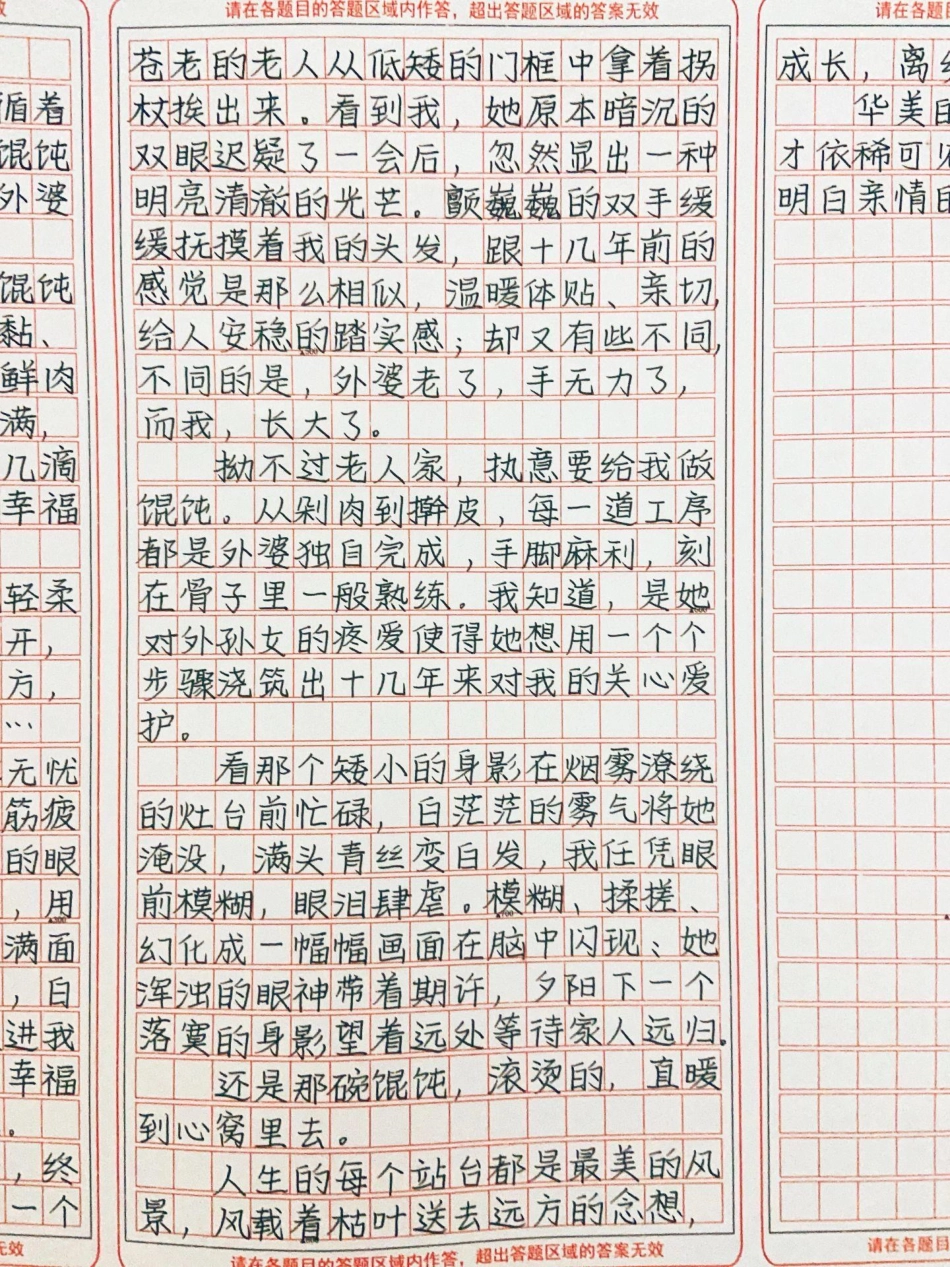 请在各题目的答题区域内作答，超出答题区域的答案无效
苍老的老人从低矮的门框中拿着拐
杖挨出来。看到我，她原本暗沉的
双眼迟疑了一会后，忽然显出一种
明亮清澈的光芒。颤巍巍的双手缓
缓抚摸着我的头发，跟十几年前的
感觉是那么相似，温暖体贴、亲切，
给人安稳的踏实感；却又有些不同，
不同的是，外婆老了，手无力了，
而我，长大了。
拗不过老人家，执意要给我做
馄饨。从剁肉到擀皮，每一道工序
都是外婆独自完成，手脚麻利，刻
在骨子里一般熟练。我知道，是她
对外孙女的疼爱使得她想用一个个
步骤浇筑出十几年来对我的关心爱
护。
看那个矮小的身影在烟雾潦绕
的灶台前忙碌，白茫茫的雾气将她
淹没，满头青丝变白发，我任凭眼
前模糊，眼泪肆虐。模糊、揉搓、
幻化成一幅幅画面在脑中闪现：她
浑浊的眼神带着期许，夕阳下一个
落寞的身影望着远处等待家人远归。
还是那碗馄饨，滚烫的，直暖
到心窝里去。
人生的每个站台都是最美的风
景，风载着枯叶送去远方的念想，
请在各题目的答题区域内作答，超出答题区域的答案无效
效
循着
馄饨
外婆
馄饨
黏、
鲜肉
满，
几滴
幸福
轻柔
开，
方，
…
无忧
筋疲
的眼
，用
满面
，白
进我
幸福
。
，终
一个
无效
请在各题
成长，离
华美
才依稀可
明白亲情的
请在各题目